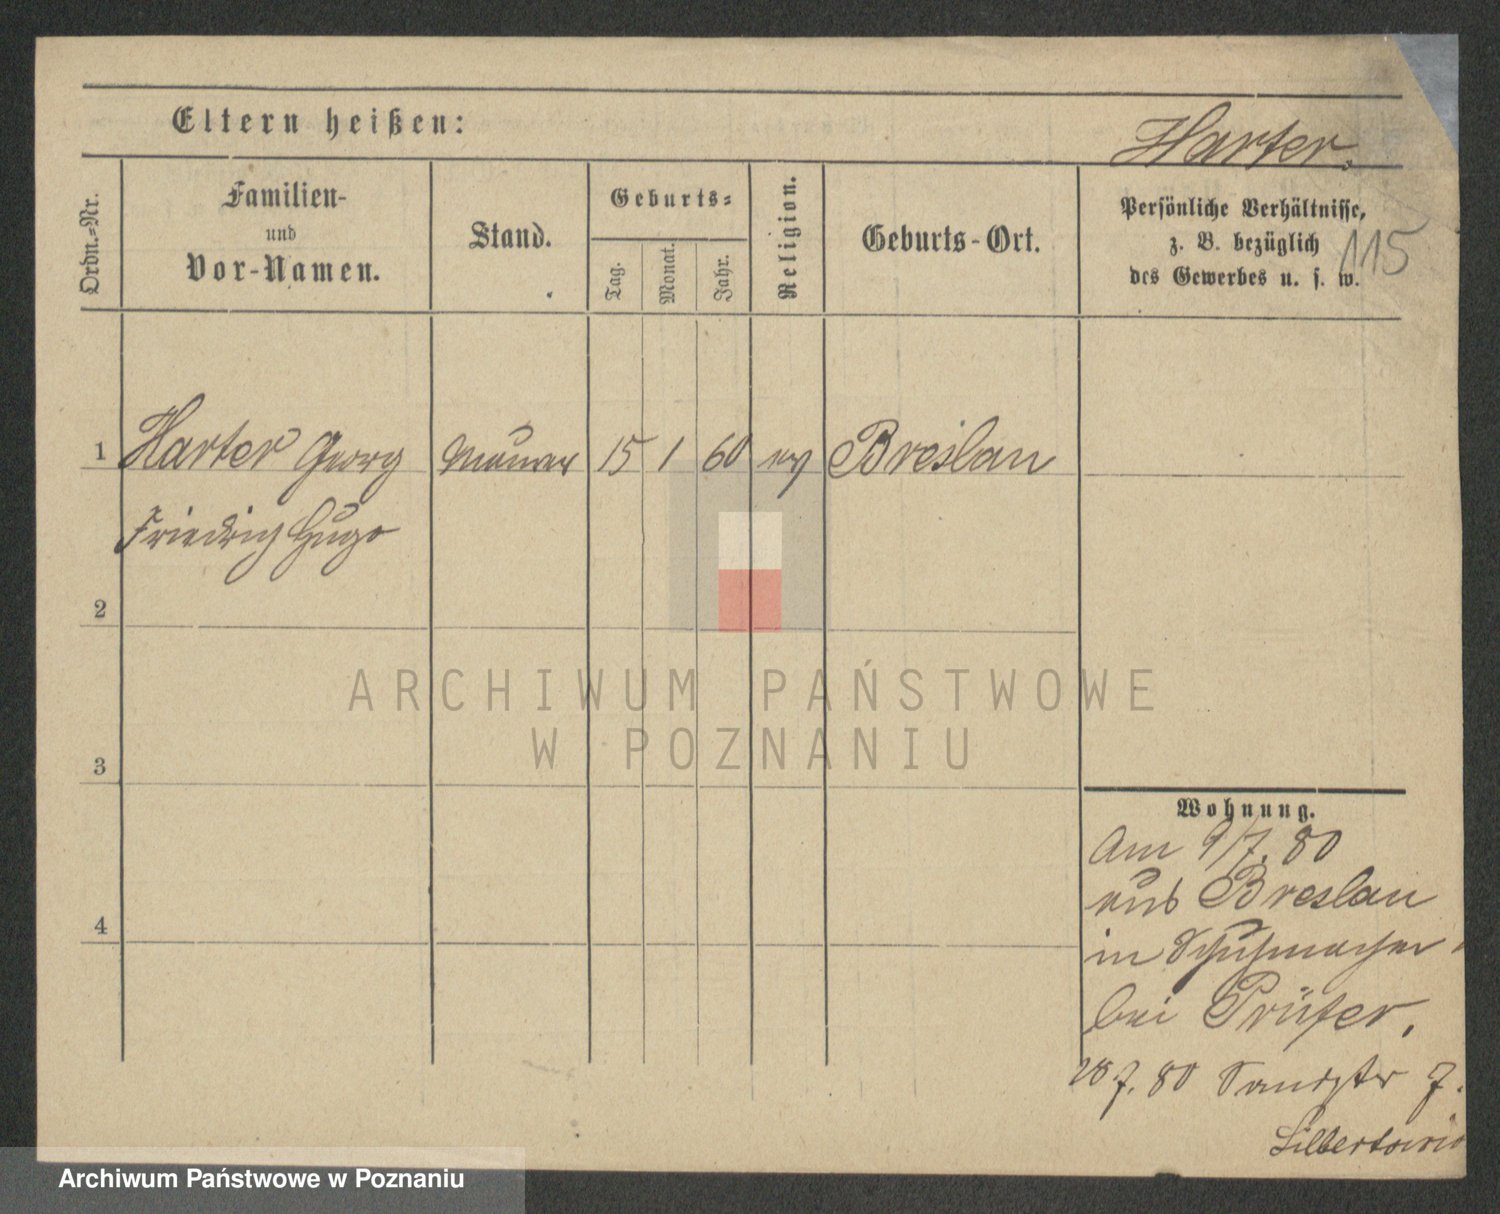 Eltern heißen:
Harter.
Ordn.-Nr.
Familien-
und
Vor-Namen.
Stand.
Geburts-
Tag.
Monat.
Jahr.
Religion.
Geburts-Ort.
Persönliche Verhältnisse,
z. B. bezüglich
des Gewerbes u. s. w.
115
1 Harter Georg Maurer 15 1 60 ev Breslau
Friedrich Hugo
2
3
4
ARCHIWUM PAŃSTWOWE
W POZNANIU
Wohnung.
Am 9/7. 80
aus Breslau
in Schuhmacher
bei Prüfer.
28 7. 80 7.
Archiwum Państwowe w Poznaniu